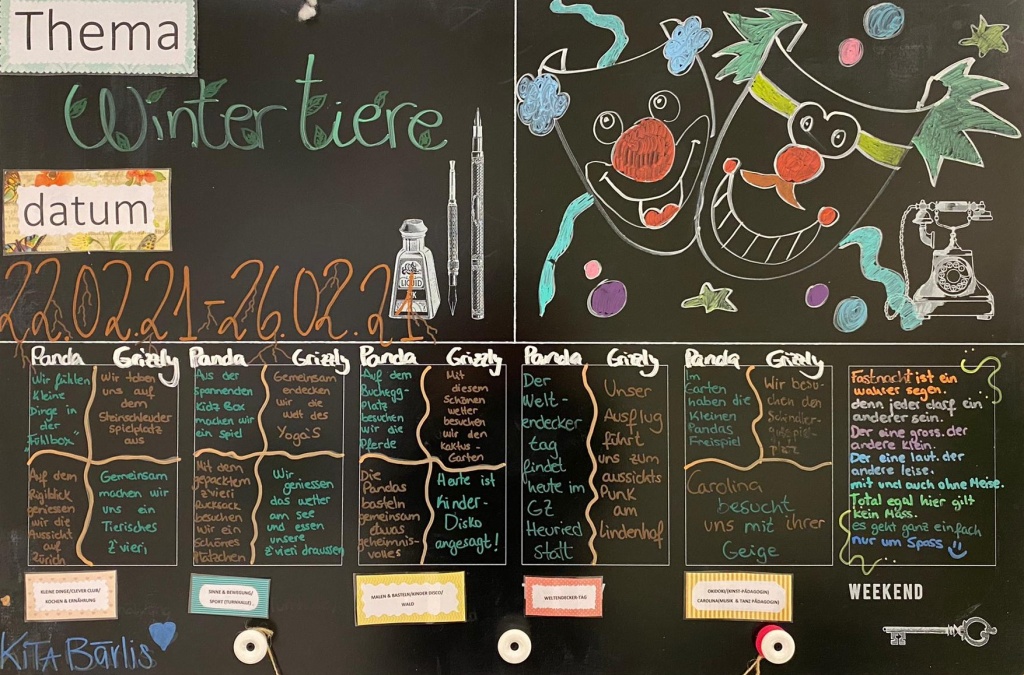 Thema
Wintertiere
datum
22.02.21-26.02.21
LIQUID
Panda Grizzly
Wir fühlen
Kleine
Dinge in
der
"Fühlbox"
Wir toben
uns auf
dem
Steinschleuder
Spielplatz
aus
Auf dem
Rigiblick
geniessen
wir die
Aussicht
auf
Zürich
Gemeinsam
machen wir
uns ein
Tierisches
Z'vieri
Panda Grizzly
Aus der
Spannenden
Kidz Box
machen wir
ein Spiel
Gemeinsam
endecken
wir die
welt des
Yoga's
Mit dem
gepacktem
Z'vieri
Rucksack
besuchen
wir ein
Schönes
Plätzchen
Wir
geniessen
das wetter
am see
und essen
unsere
Z'vieri draussen
Panda Grizzly
Auf dem
Buchegg-
Platz
besuchen
wir die
Pferde
Mit
diesem
Schönen
wetter
besuchen
wir den
Kaktus-
Garten
Die
Pandas
basteln
gemeinsam
etwas
geheimnis-
volles
Heute ist
Kinder-
Disko
angesagt!
Panda Grizzly
Der
Welt-
endecker
tag
findet
heute im
GZ
Heuried
statt
Unser
Ausflug
führt
uns zum
aussichts
Punk
am
Lindenhof
Panda Grizzly
Im
Garten
haben die
Kleinen
Pandas
Freispiel
Wir besu-
chen den
Carolina
besucht
uns mit ihrer
Geige
Fastnacht ist ein
wahrer segen.
denn jeder darf ein
anderer sein.
Der eine gross. der
andere Klein.
Der eine laut. der
andere leise.
mit und auch ohne Meise.
Total egal hier gilt
kein Mass.
es geht ganz einfach
nur um Spass
KLEINE DINGE/CLEVER CLUB/
KOCHEN & ERNÄHRUNG
SINNE & BEWEGUNG/
SPORT (TURNHALLE)
MALEN & BASTELN/KINDER DISCO/
WALD
WELTENDECKER-TAG
OKIDOKI/(KUNST-PÄDAGOGIN)
CAROLINA(MUSIK & TANZ PÄDAGOGIN)
WEEKEND
KiTA Bärlis